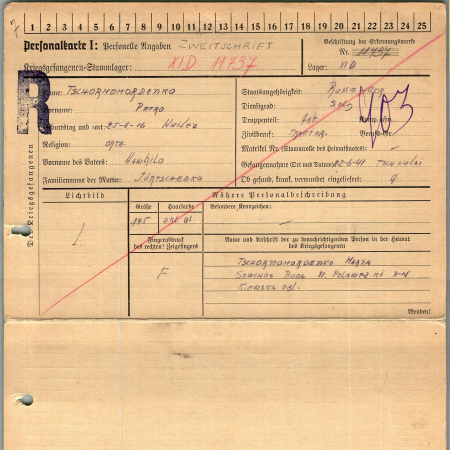 1 2 3 4 5 6 7 8 9 10 11 12 13 14 15 16 17 18 19 20 21 22 23 24 25
Personalkarte I: Personelle Angaben ZWEITSCHRIFT
Beschriftung der Erkennungsmarke
Nr. 11737
Kriegsgefangenen-Stammlager: XI D 11737
Lager: XI D
Des Kriegsgefangenen
R
Name: TSCHORNOMORDENKO
Staatsangehörigkeit: RUSSE
Vorname: PETRO
Dienstgrad: SOLD
Geburtstag und -ort: 25-8-16
Truppenteil: Komp. usw.
Religion: ORTH.
Zivilberuf: TRAKTOR. Berufs-Gr.
703
Matrikel Nr. (Stammrolle des Heimatstaates): —
Vorname des Vaters:
Gefangennahme (Ort und Datum): 22-6-41
Familienname der Mutter: JÜRTSCHENKO
Ob gesund, krank, verwundet eingeliefert: g
Lichtbild
Nähere Personalbeschreibung
Größe Haarfarbe Besondere Kennzeichen:
175 DKL BL —
L.
Fingerabdruck
des rechten! Zeigefingers
F
Name und Anschrift der zu benachrichtigenden Person in der Heimat
des Kriegsgefangenen
TSCHORNOMORDENKO
SOWCHOS
KIEWSKA OBL.
Wenden!